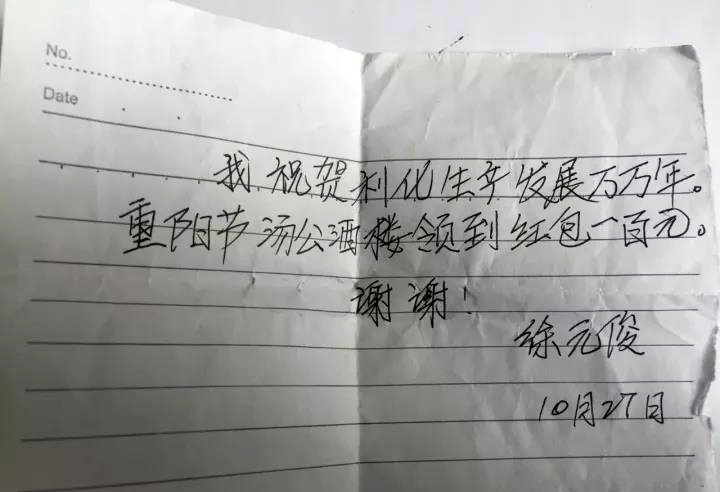 No.
Date
我祝贺利化生产发展万万年。
重阳节汤公酒楼领到红包一百元。
谢谢！
徐元俊
10月27日